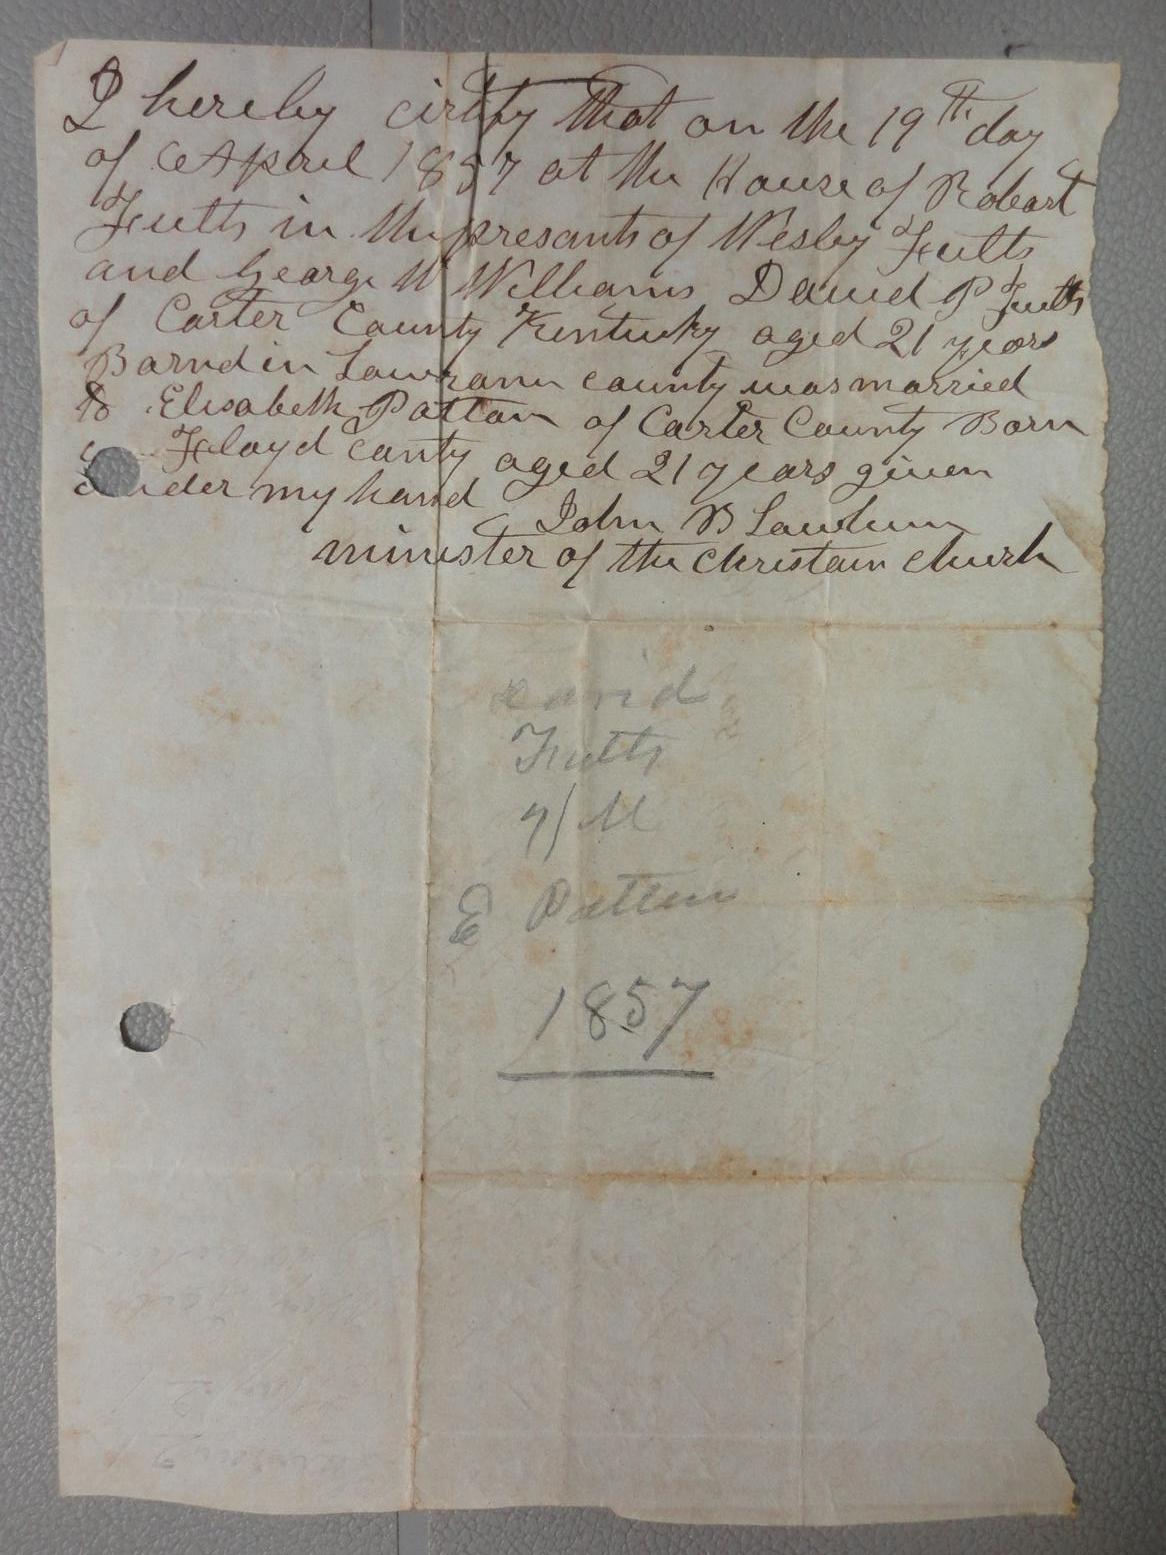 I hereby cirtify that on the 19th day
of April 1857 at the House of Robart
Fults in the presants of Wesley Fults
and George W Williams David P Fults
of Carter County Kentucky aged 21 years
Barnd in county was married
to Elisabeth Pattan of Carter County Born
Floyd canty aged 21 years given
under my hand
John B
minister of the Christain church
David
Fults
M
E Patten
1857